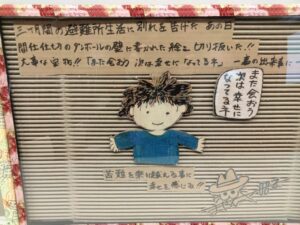 三ヶ月間の避難所生活に別れを告げた あの日
間仕切りのダンボールの壁に書かれた絵を切り抜いた!!
大事な宝物!!「また会おう 次は幸せになってる手」 一番の出来事に
また会おう
次は幸せに
なってる手
苦難を乗り越える事に
幸せを感じる!!